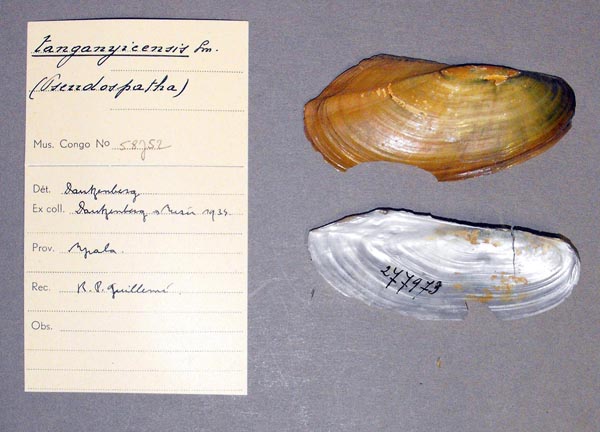 tanganyicensis Sm.
(Pseudospatha)
Mus. Congo No
Dét. Dautzenberg
Ex coll. Dautzenberg 1934.
Prov. Mpala.
Rec. R. P. Guillemé.
Obs.
277979